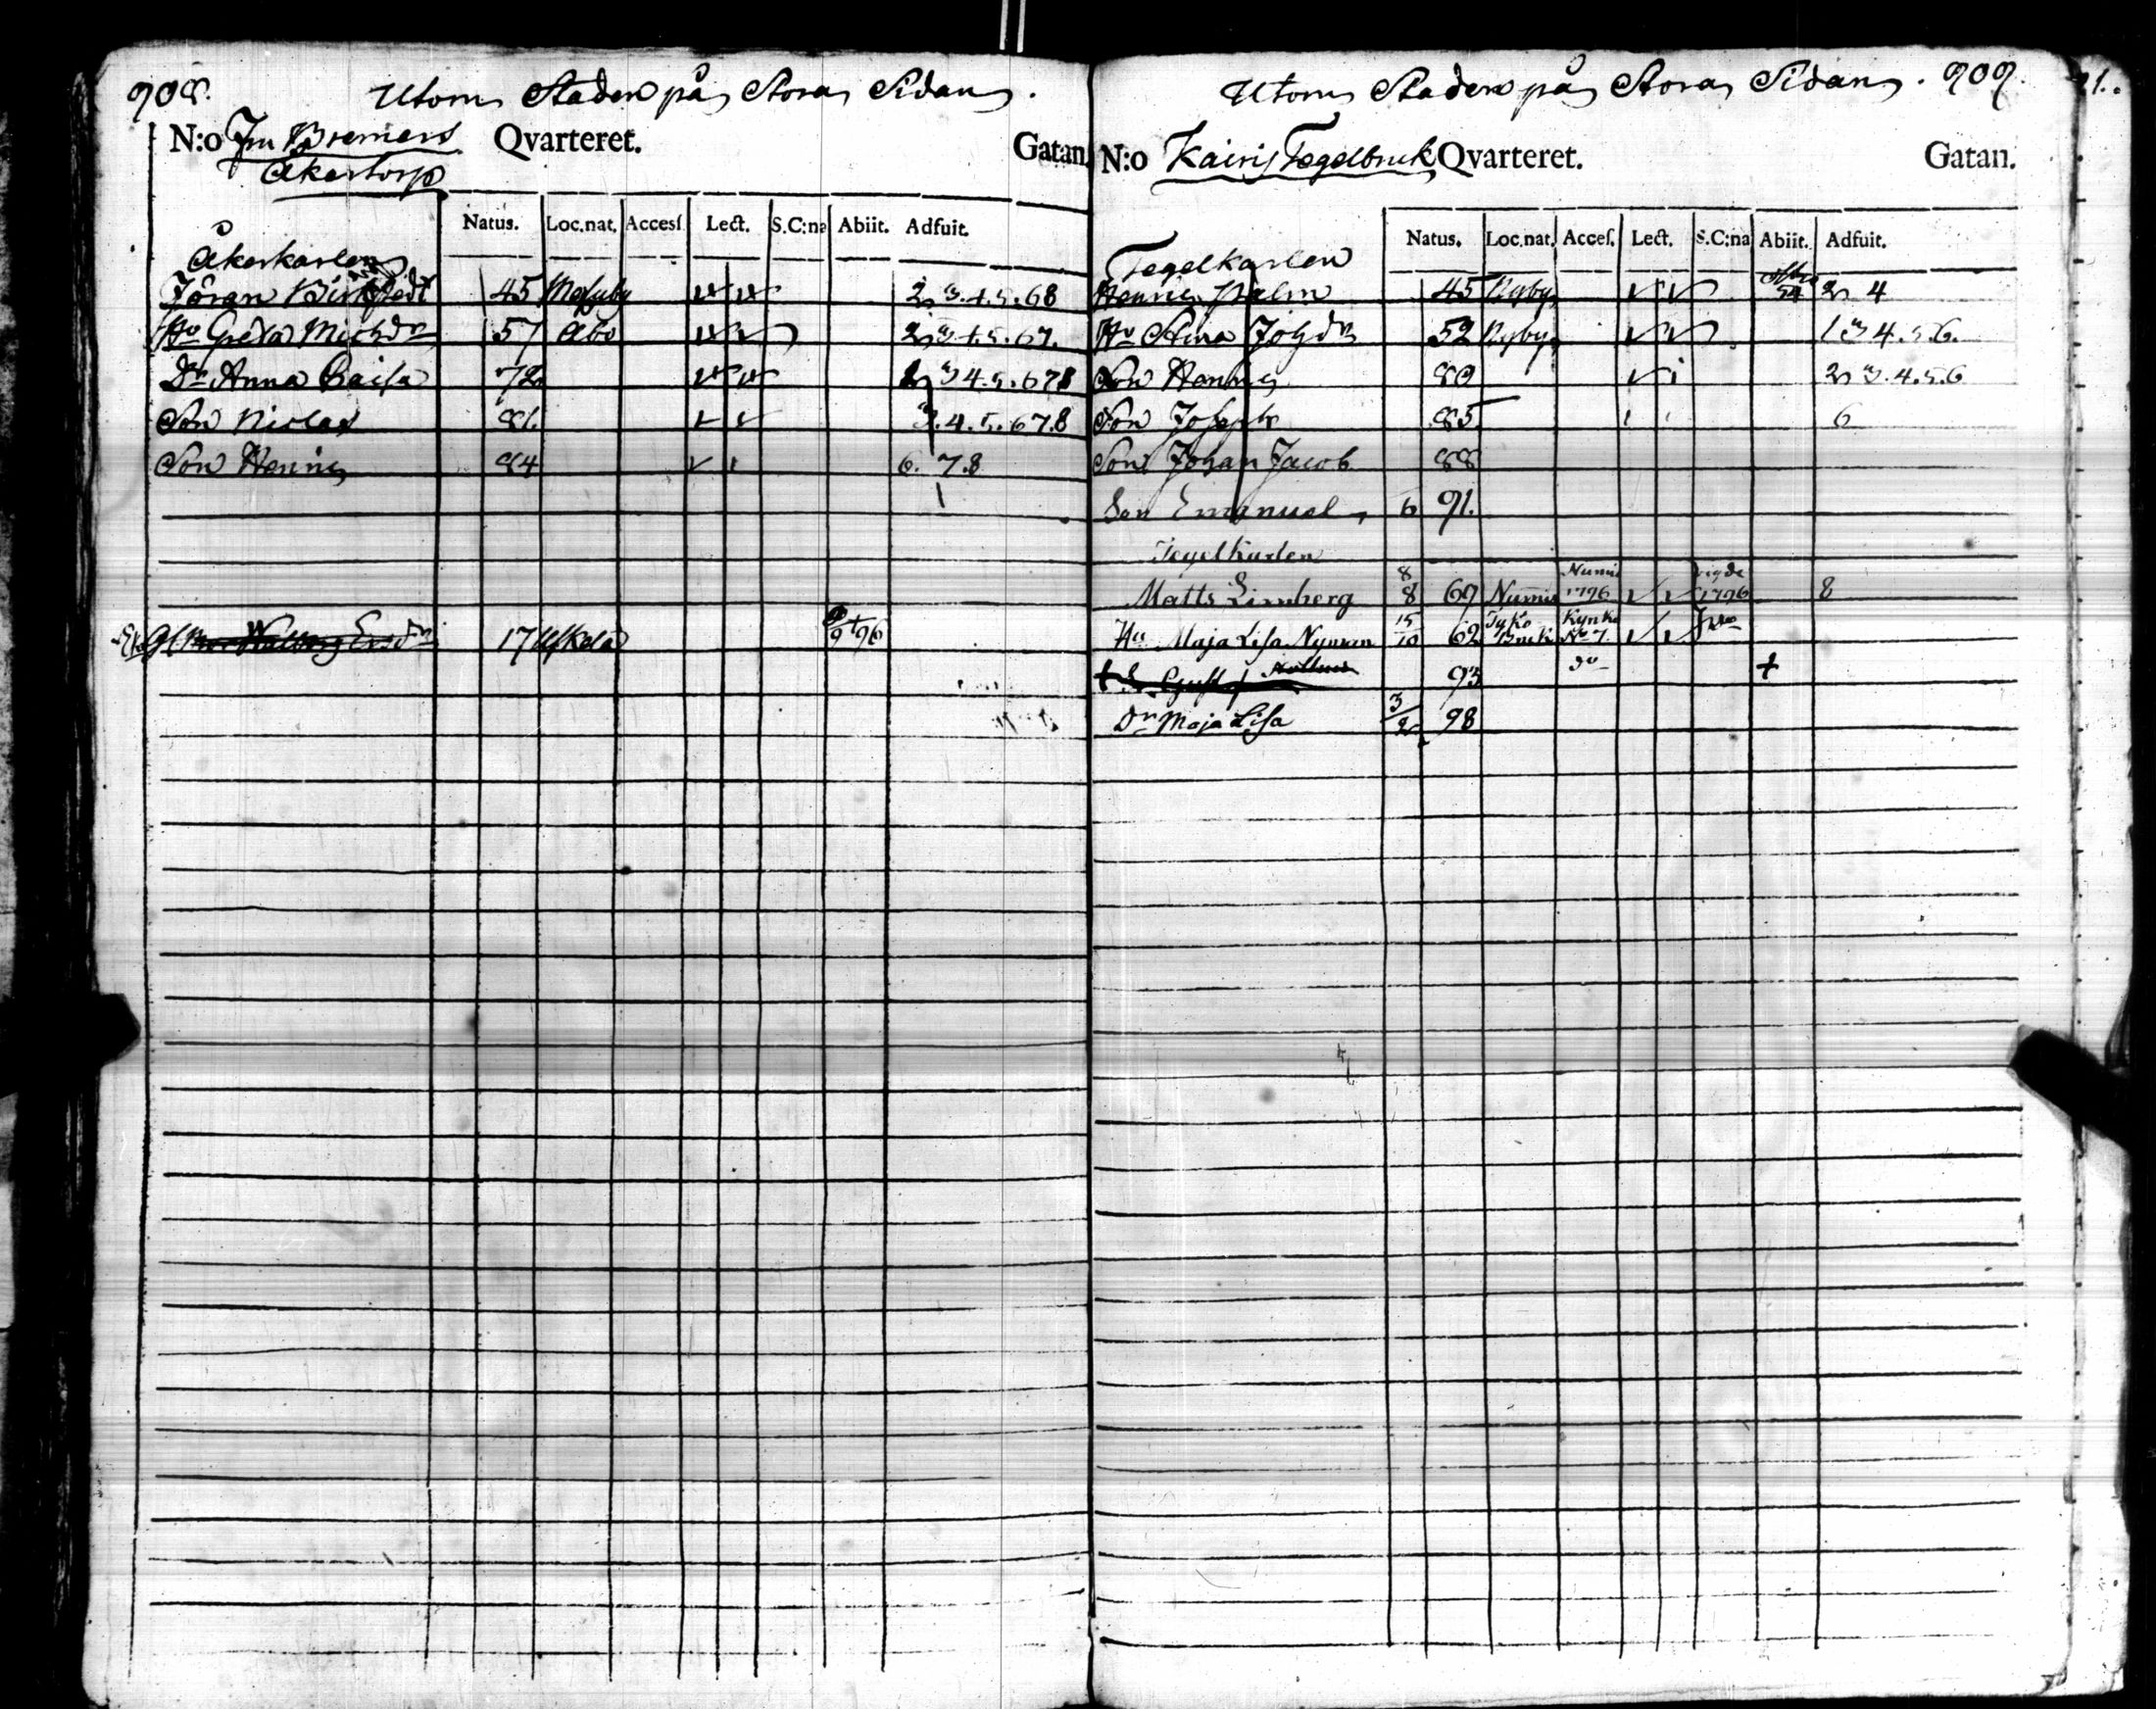 908. Utom Staden på Stora Sidan.
N:o Jm Bremers Qvarteret. Gatan.
Åkertorp
Natus. Loc.nat. Access. Lect. S.C:na Abiit. Adfuit.
Åkerkarlen
Jöran 45 2 3.4.5.68
Hu Greta Michdr 57 Åbo 2 3 4.5.67.
Dr Anna Caisa 72 2 3 4.5.678
Son Niclas 81. 3.4.5.678
Son Henric 84 6. 7.8
17 Uskela 9/9 96
Utom Staden på Stora Sidan. 909.
N:o Kairis Tegelbruk Qvarteret. Gatan.
Natus. Loc.nat. Acces. Lect. S.C:na Abiit. Adfuit.
Tegelkarlen
Henric Palm 45 Nyby 2 4
Hu Stina Johdr 52 Nyby 1 3 4.5.6.
Son Henric 80 2 3.4.5.6
Son Joseph 85 6
Son Johan Jacob 88
Son Emanuel 6 91.
Tegelkarlen
Matts Limberg 8/8 69 Numis Numis 1796 vigde 1796 8
Hu Maja Lisa Nyman 15/10 62 Tyko Bruk No 7
+ S. Gustaf 93 do +
Dr Maja Lisa 3/2 98